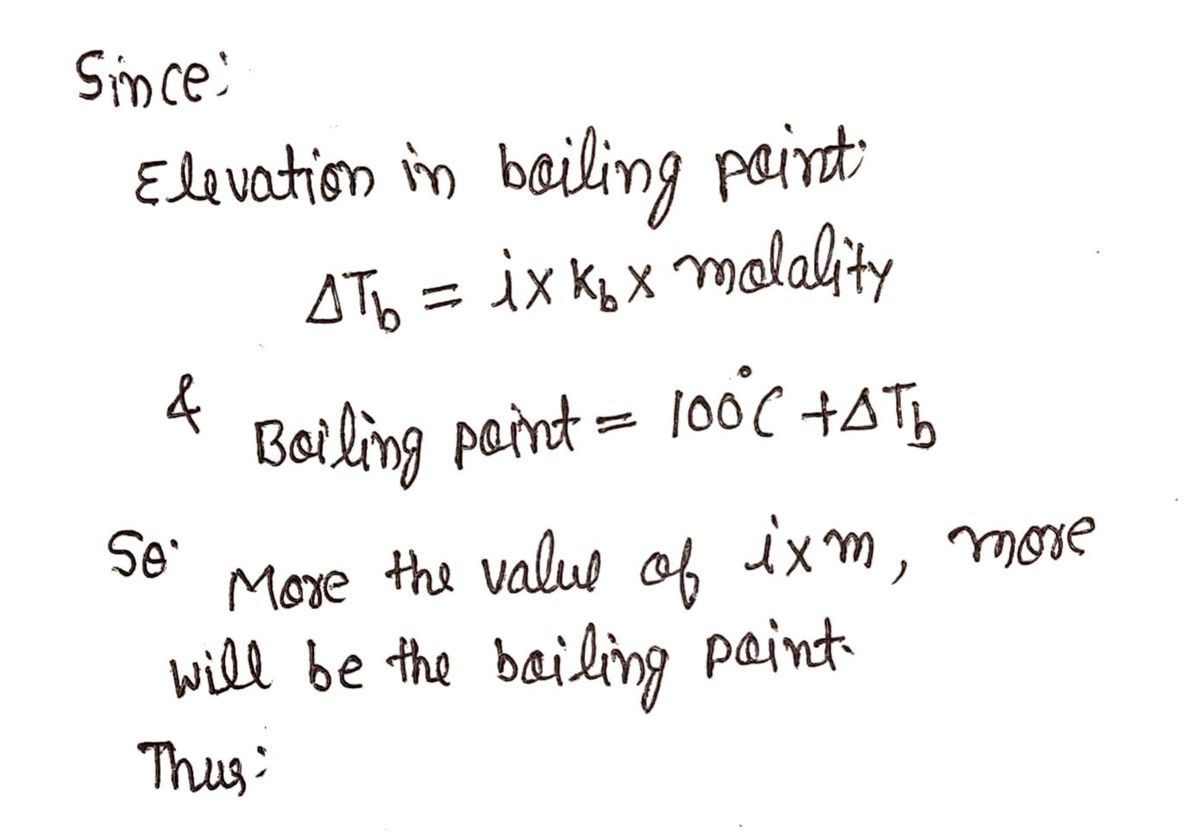 Since:
Elevation in boiling point:
ΔTb = i x Kb x molality
& Boiling point = 100°C + ΔTb
So: More the value of i x m, more
will be the boiling point.
Thus: